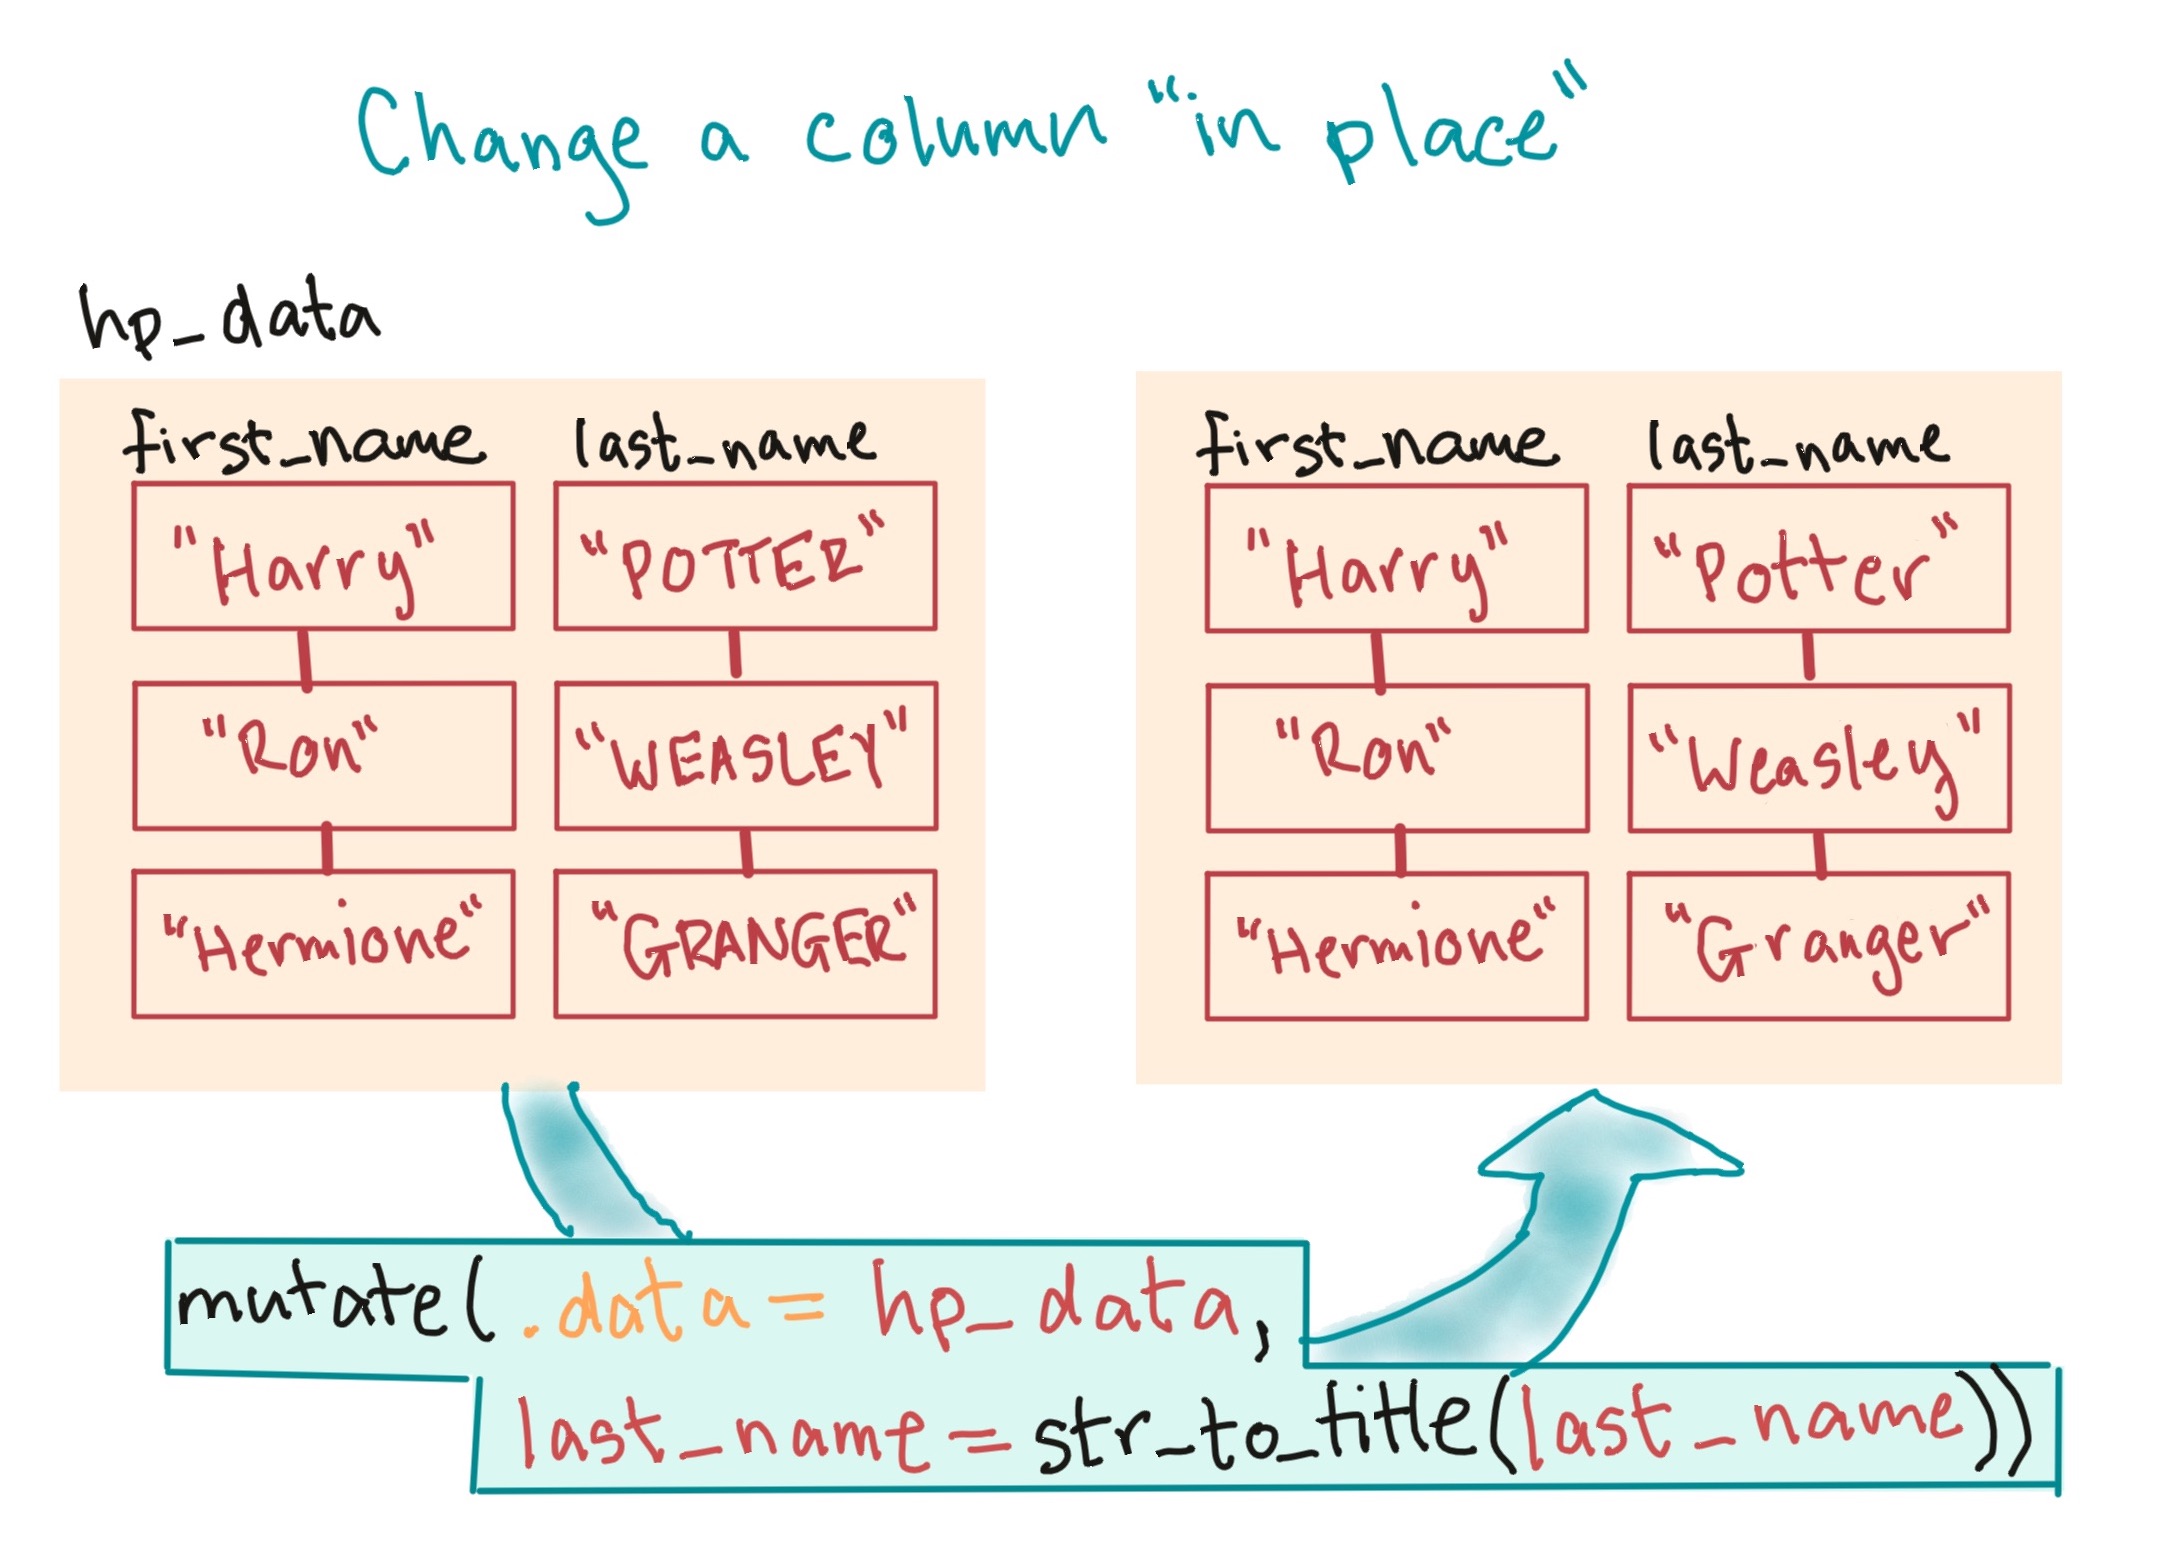 Change a column "in place"
hp_data
first_name last_name
"Harry" "POTTER"
"Ron" "WEASLEY"
"Hermione" "GRANGER"
first_name last_name
"Harry" "Potter"
"Ron" "Weasley"
"Hermione" "Granger"
mutate(.data = hp_data,
last_name = str_to_title(last_name))